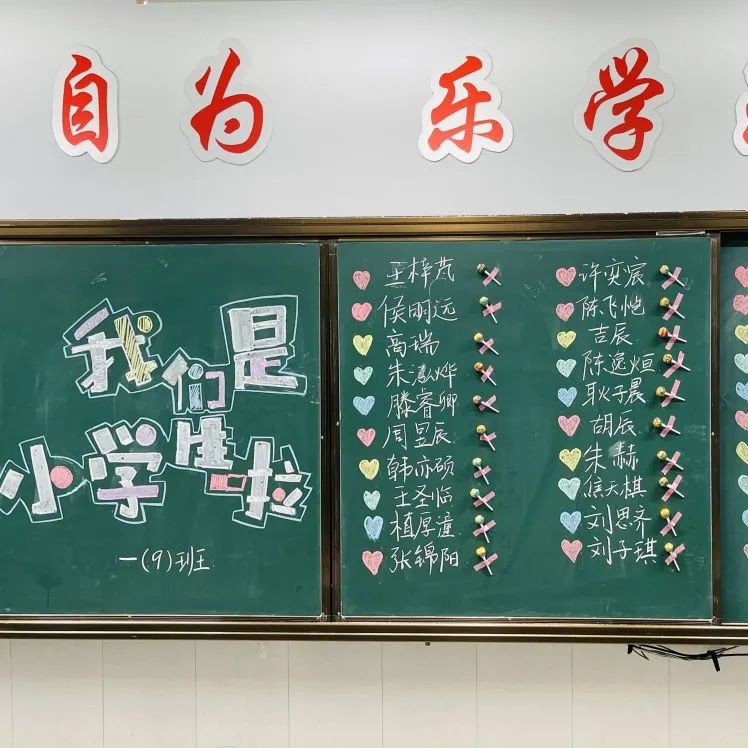 自为 乐学
我们是
小学生啦
一(9)班
王梓芃
侯明远
高瑞
朱泓烨
滕睿卿
周昱辰
韩亦硕
王圣临
植厚潼
张锦阳
许奕宸
陈飞恺
吉辰
陈逸烜
耿子晨
胡辰
朱赫
焦天棋
刘思齐
刘子琪